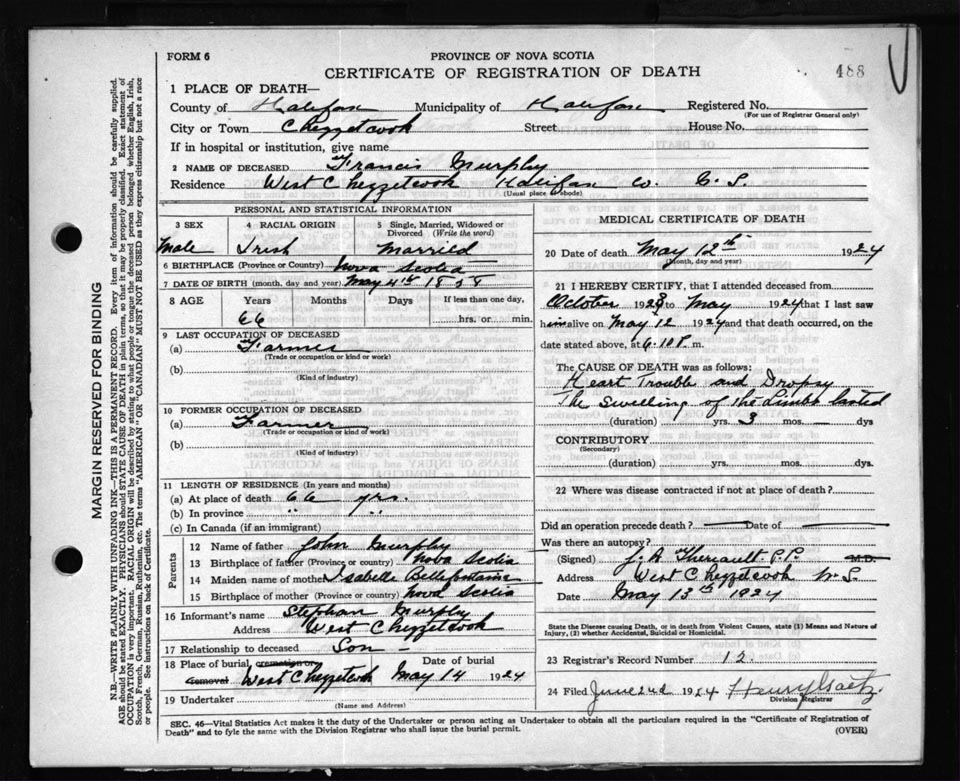 FORM 6
PROVINCE OF NOVA SCOTIA
CERTIFICATE OF REGISTRATION OF DEATH
488
1 PLACE OF DEATH—
County of Halifax Municipality of Halifax Registered No.
(For use of Registrar General only)
City or Town Chezzetcook Street House No.
If in hospital or institution, give name
2 NAME OF DECEASED Francis Murphy
Residence West Chezzetcook Halifax Co.
(Usual place of abode)
PERSONAL AND STATISTICAL INFORMATION
3 SEX
Male
4 RACIAL ORIGIN
Irish
5 Single, Married, Widowed or Divorced (Write the word)
Married
6 BIRTHPLACE (Province or Country) Nova Scotia
7 DATE OF BIRTH (month, day and year) May 4th 1858
8 AGE Years Months Days If less than one day,
66 hrs. or min.
9 LAST OCCUPATION OF DECEASED
(a) Farmer
(Trade or occupation or kind or work)
(b)
(Kind of industry)
10 FORMER OCCUPATION OF DECEASED
(a) Farmer
(Trade or occupation or kind of work)
(b)
(Kind of industry)
11 LENGTH OF RESIDENCE (In years and months)
(a) At place of death 66 yrs.
(b) In province " "
(c) In Canada (if an immigrant)
Parents
12 Name of father John Murphy
13 Birthplace of father (Province or Country) Nova Scotia
14 Maiden name of mother Isabelle Bellefontaine
15 Birthplace of mother (Province or country) Nova Scotia
16 Informant's name Stephan Murphy
Address West Chezzetcook
17 Relationship to deceased Son
18 Place of burial, cremation or removal West Chezzetcook Date of burial May 14 1924
19 Undertaker
(Name and Address)
MEDICAL CERTIFICATE OF DEATH
20 Date of death May 12th 1924
(Month, day and year)
21 I HEREBY CERTIFY, that I attended deceased from
October 1923 to May 1924 that I last saw
him alive on May 12 1924 and that death occurred, on the
date stated above, at m.
The CAUSE OF DEATH was as follows:
Heart Trouble and Dropsy
The Swelling of the Limbs lasted
(duration) yrs. 3 mos. dys
CONTRIBUTORY
(Secondary)
(duration) yrs. mos. dys.
22 Where was disease contracted if not at place of death?
Did an operation precede death? Date of
Was there an autopsy?
(Signed) J. A. Theriault P.P. M.D.
Address West Chezzetcook N.S.
Date May 13th 1924
State the Disease causing Death, or in death from Violent Causes, state (1) Means and Nature of Injury, (2) whether Accidental, Suicidal or Homicidal.
23 Registrar's Record Number 12.
24 Filed June 2nd 1924 Henry Gaetz
Division Registrar
SEC. 46—Vital Statistics Act makes it the duty of the Undertaker or person acting as Undertaker to obtain all the particulars required in the "Certificate of Registration of
Death" and to fyle the same with the Division Registrar who shall issue the burial permit.
(OVER)
MARGIN RESERVED FOR BINDING
N.B.—WRITE PLAINLY WITH UNFADING INK—THIS IS A PERMANENT RECORD. Every item of information should be carefully supplied.
AGE should be stated EXACTLY. PHYSICIANS should STATE CAUSE OF DEATH in plain terms, so that it may be properly classified. Exact statement of
OCCUPATION is very important. RACIAL ORIGIN will be described by stating to what people or tongue the deceased person belonged whether English, Irish,
Scotch, French, German, Russian, Ruthenian, etc. The terms "AMERICAN" OR "CANADIAN" MUST NOT BE USED as they express citizenship but not a race
or people. See instructions on back of Certificate.